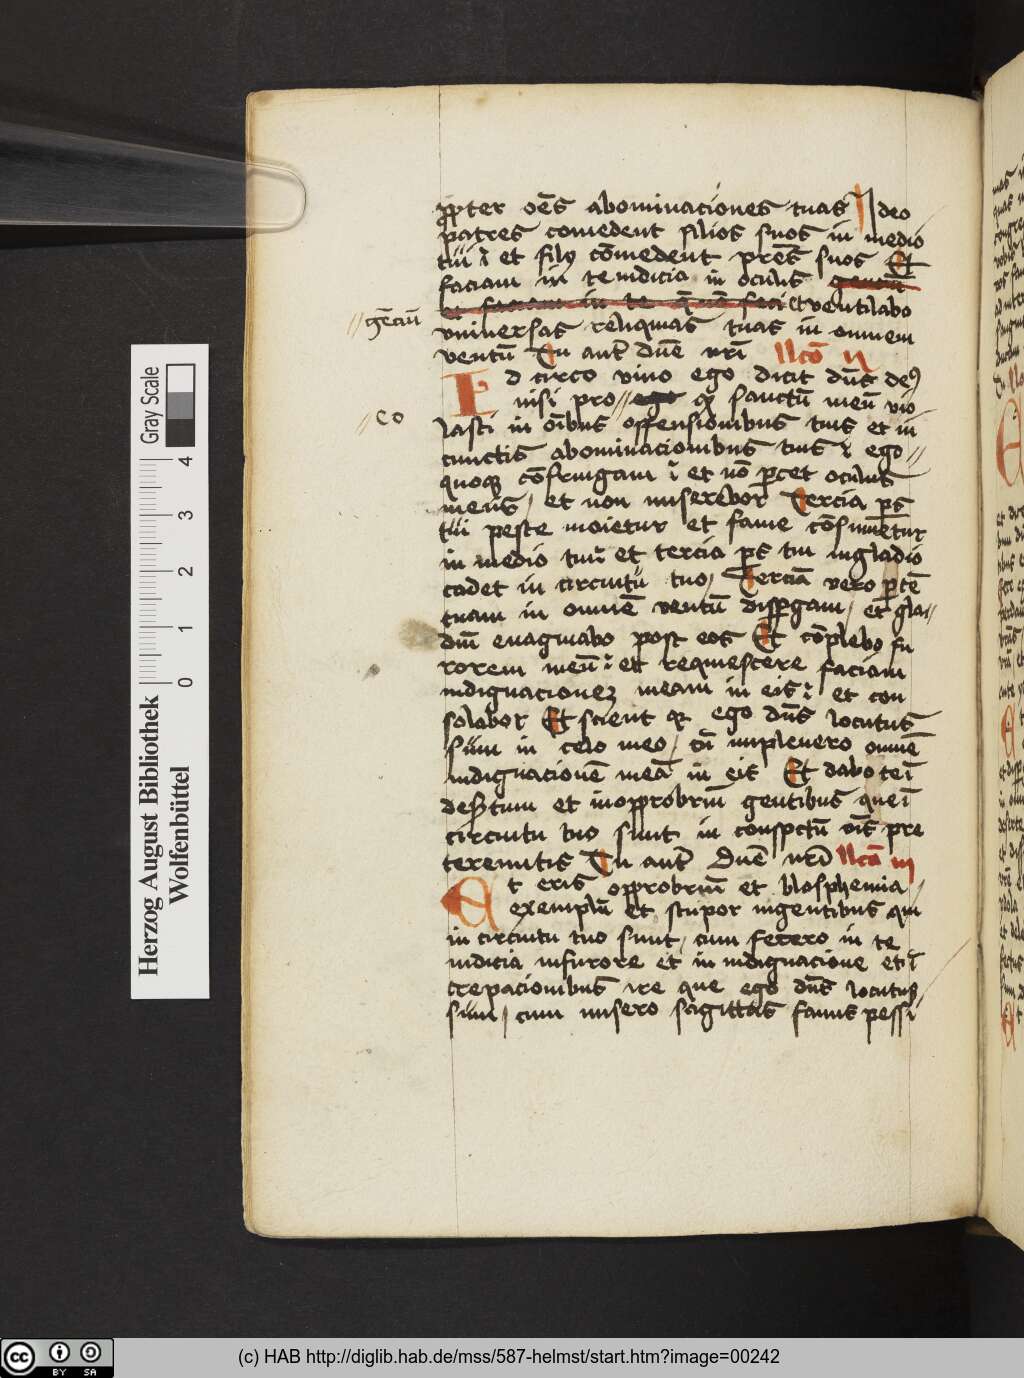 ꝓpter oēs abominaciones tuas Ideo
patres comedent filios suos in medio
tui ⁊ et filij cōmedent pr̄es suos Et
faciam in te iudicia in oculis genciū
et faciam in te q̄ nō feci et ventilabo
//gēciū
vniuersas reliquias tuas in omnem
ventū Tu aut̄ dn̄e nr̄i llcō II
Id circo viuo ego dicit dn̄s deꝯ
nisi pro // ego qꝛ sanctū meū vio
// eo
lasti in oībus offensionibus tuis et in
cunctis abominacionibus tuis ⁊ ego //
quoqꝫ cōfringam ⁊ et nō ꝑcet oculus
meus / et non miserebor Tercia ꝑs
tui peste moietur et fame cōsumetur
in medio tui ⁊ et tercia ꝑs tui in gladio
cadet in circuitu tuo / Terciā vero ꝑtē
tuam in omnē ventū disꝑgam / et gla//
diū euaginabo post eos Et cōplebo fu
rorem meū ⁊ et requiescere faciam
indignacionez meam in eis ⁊ et con
solabor Et scient qꝛ ego dn̄s locutus
sum in celo meo / cū impleuero omnē
indignacionē meā in eis Et dabo te ī
desertum et in opprobriū gentibus que ī
circuitu tuo sunt in conspctū oīs pre
tereuntis Tu aut̄ Dn̄e nr̄i llcō III
Et eris opprobriū et blasphemia /
exemplū et stupor in gentibus qui
in circuitu tuo sunt / cum fecero in te
iudicia in furore et in indignacione et ī
crepacionibus ire que ego dn̄s locutus /
sum / cum misero sagittas famis pessi
Herzog August Bibliothek
Wolfenbüttel
Gray Scale
0 1 2 3 4
CC BY SA
(c) HAB http://diglib.hab.de/mss/587-helmst/start.htm?image=00242